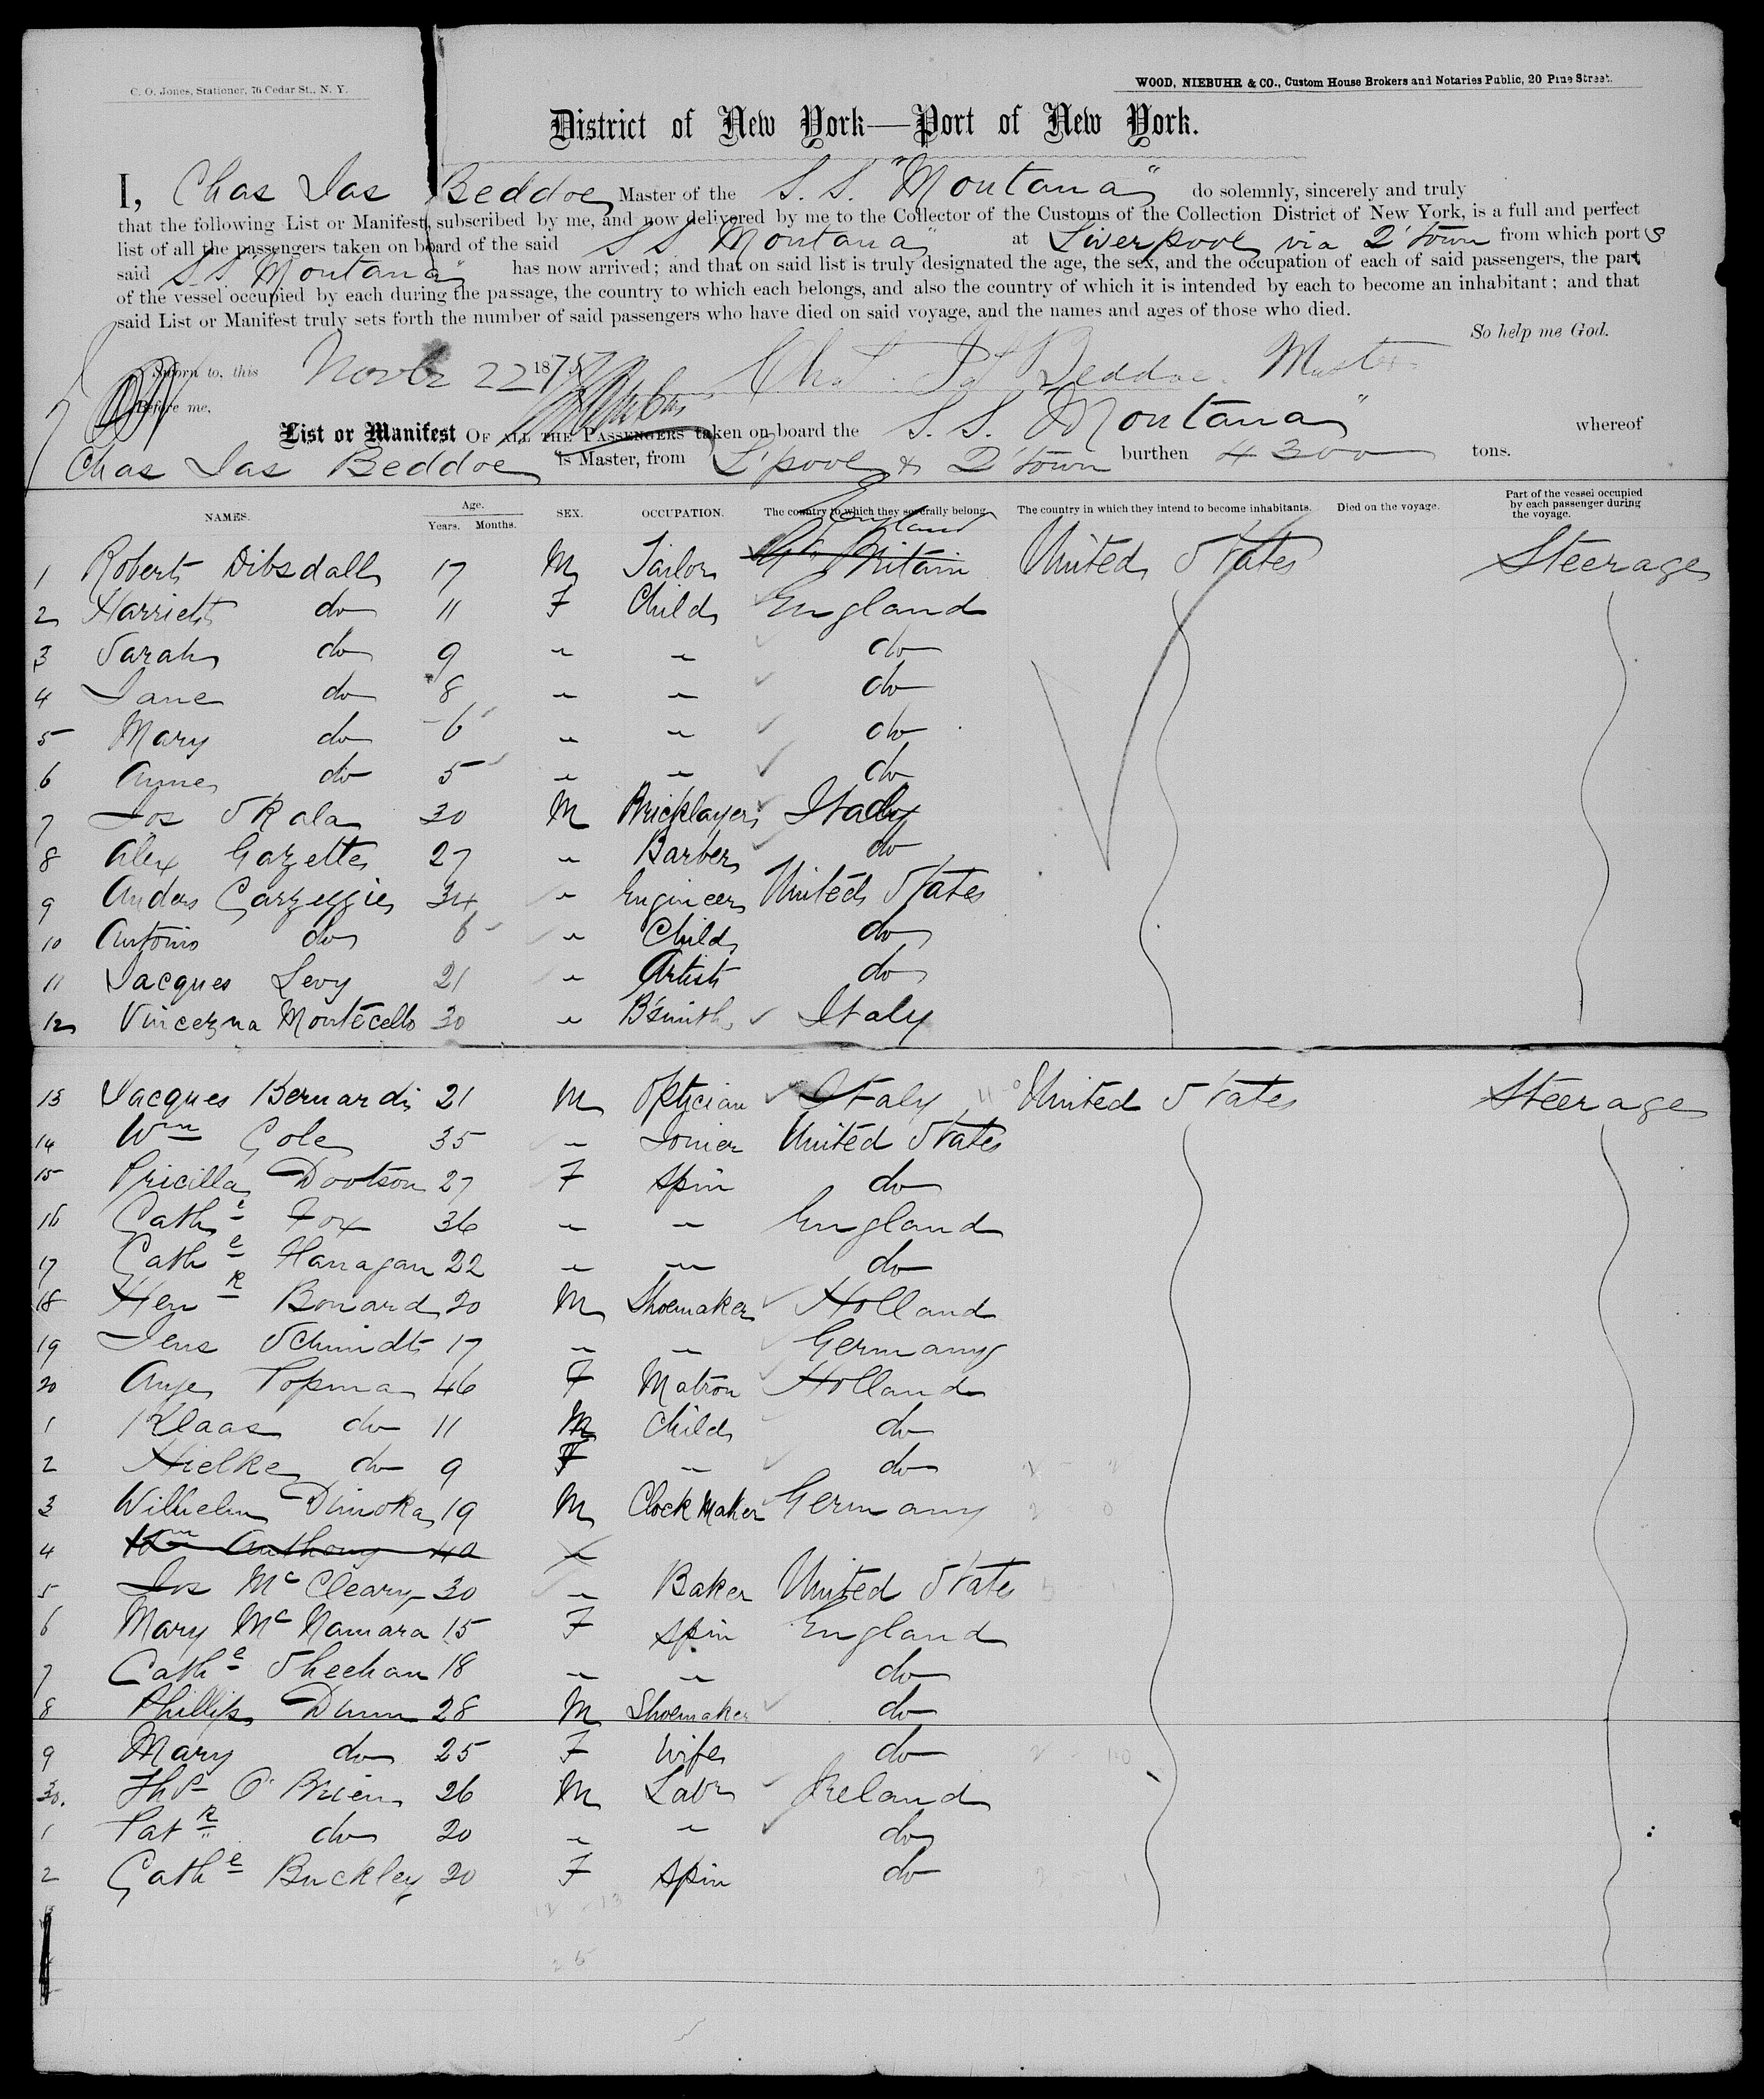 C. O. Jones, Stationer, 76 Cedar St., N. Y.
WOOD, NIEBUHR & CO., Custom House Brokers and Notaries Public, 20 Pine Street.
District of New York—Port of New York.
I, Chas Jas Beddoe Master of the S. S. "Montana" do solemnly, sincerely and truly
that the following List or Manifest, subscribed by me, and now delivered by me to the Collector of the Customs of the Collection District of New York, is a full and perfect
list of all the passengers taken on board of the said S S Montana" at Liverpool via Q'town from which port s
said S. S "Montana" has now arrived; and that on said list is truly designated the age, the sex, and the occupation of each of said passengers, the part
of the vessel occupied by each during the passage, the country to which each belongs, and also the country of which it is intended by each to become an inhabitant; and that
said List or Manifest truly sets forth the number of said passengers who have died on said voyage, and the names and ages of those who died.
So help me God.
Sworn to, this Novbr 22 1875 Chas Jas Beddoe Master
Before me,
List or Manifest OF ALL THE PASSENGERS taken on board the S. S. Montana" whereof
Chas Jas Beddoe is Master, from L'pool & Q'town burthen 4300 tons.
NAMES. Age. Years. Months. SEX. OCCUPATION. The country to which they severally belong. The country in which they intend to become inhabitants. Died on the voyage. Part of the vessel occupied by each passenger during the voyage.
England
1 Robert Dibsdall 17 M Tailor Gt Britain United States Steerage
2 Harriett do 11 F Child England
3 Sarah do 9 " " do
4 Jane do 8 " " do
5 Mary do 6 " " do
6 Anne do 5 " " do
7 Jos Skala 30 M Bricklayer Italy
8 Alex Gazette 27 " Barber do
9 Anders 34 " Engineer United States
10 Antonio do 6 " Child do
11 Jacques Levy 21 " Artist do
12 Montecello 30 " B'smith Italy
13 Jacques Bernardi 21 M Optician Italy United States Steerage
14 Wm Cole 35 " Joiner United States
15 Pricilla Dootson 27 F Spin do
16 Cathe Fox 36 " " England
17 Cathe Flanagan 22 " " do
18 Hen Bonard 20 M Shoemaker Holland
19 Jens Schmidt 17 " " Germany
20 Anje Topma 46 F Matron Holland
1 Klaas do 11 M Child do
2 Hielke do 9 F " do
3 Wilhelm 19 M Clock Maker Germany
4 Wm Anthony 40 "
5 Jos McCleary 30 " Baker United States
6 Mary McNamara 15 F Spin England
7 Cathe Sheehan 18 " " do
8 Phillip Dunn 28 M Shoemaker do
9 Mary do 25 F Wife do
30. Thos O'Brien 26 M Labr Ireland
1 Patk do 20 " " do
2 Cathe Buckley 20 F Spin do